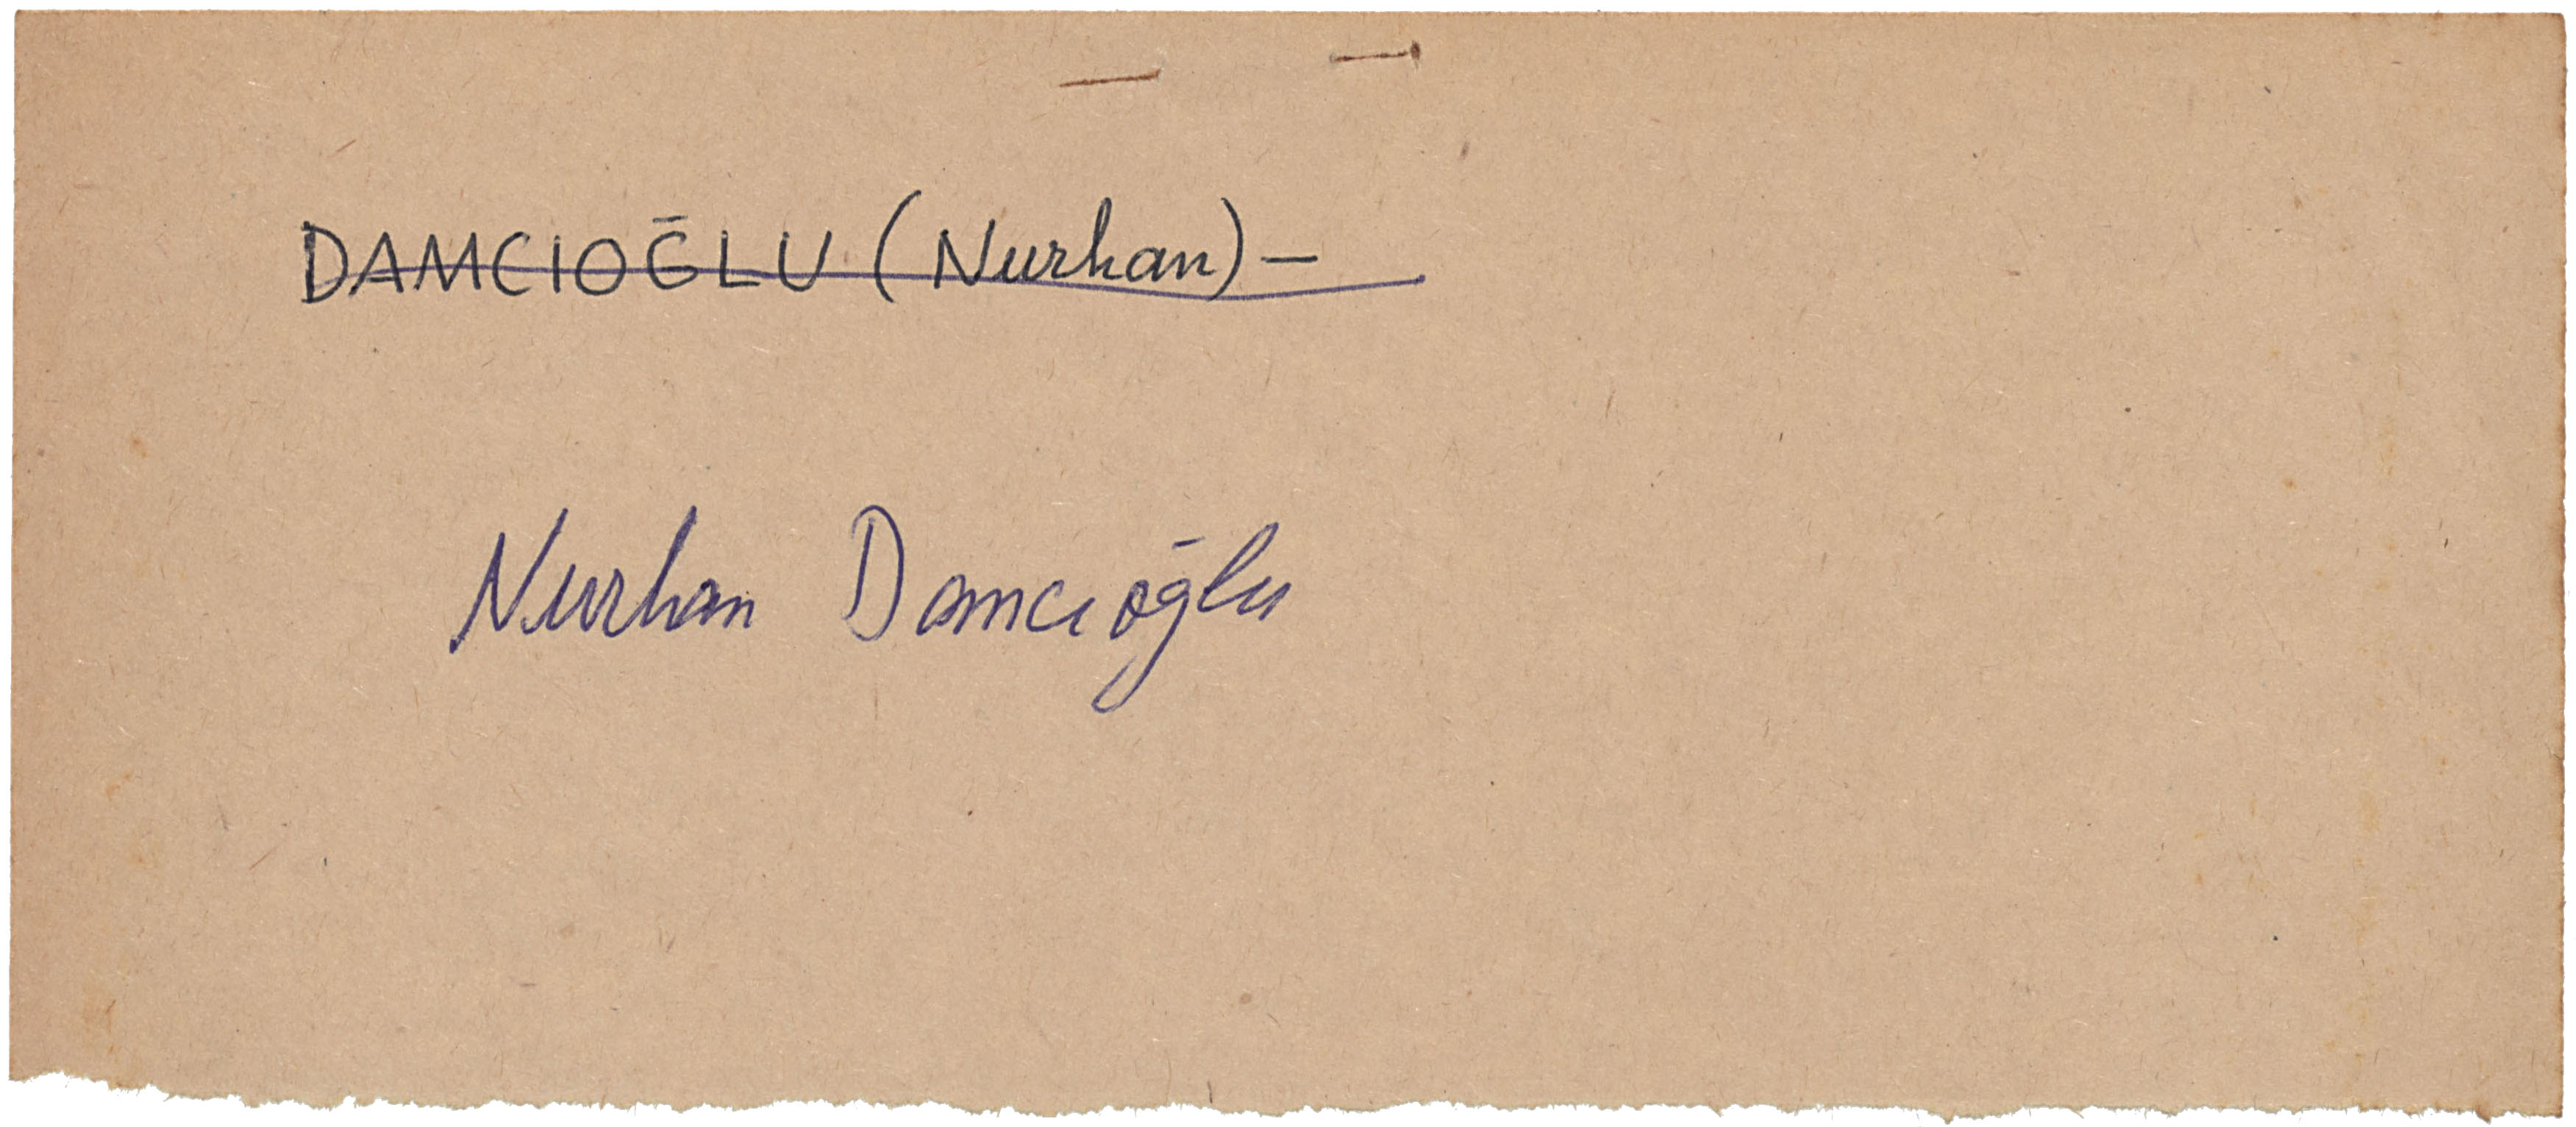 DAMCIOĞLU (Nurhan) —
Nurhan Damcıoğlu